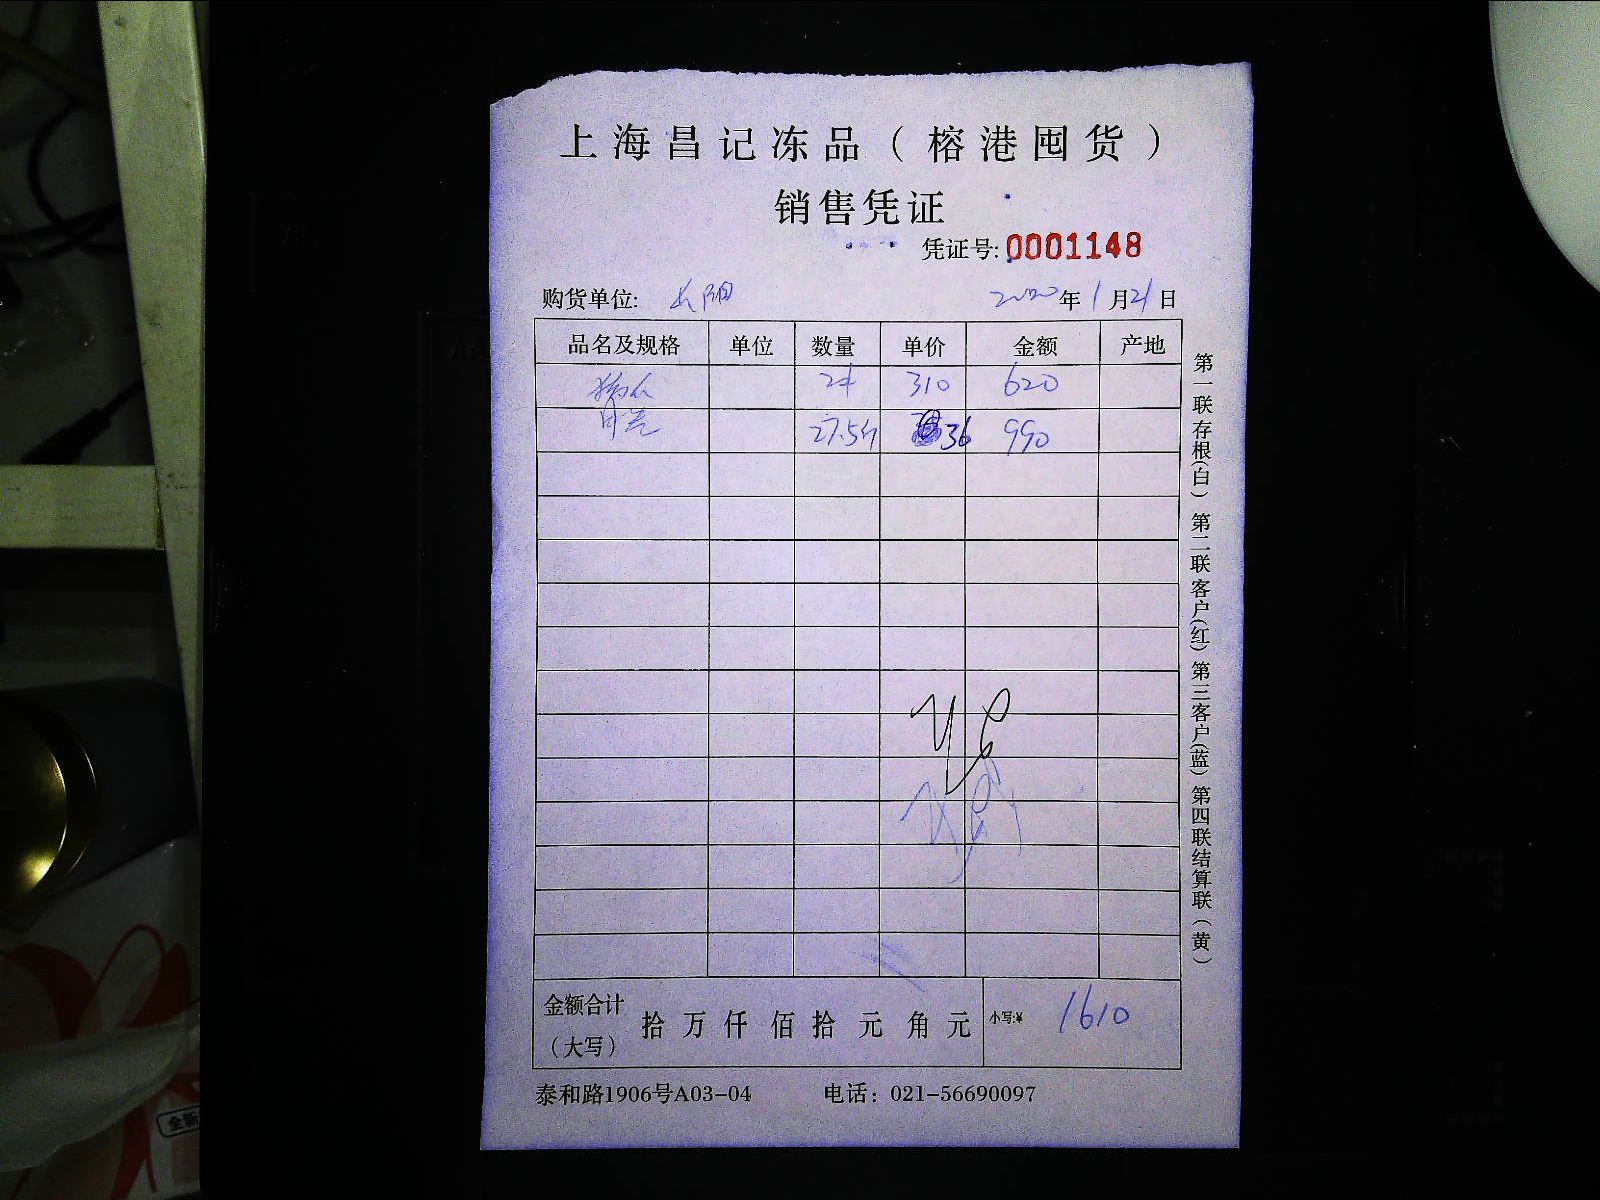 上海昌记冻品（榕港囤货）
销售凭证
凭证号:0001148
购货单位: 长阳 2020年1月21日
品名及规格 单位 数量 单价 金额 产地
2件 310 620
27.5斤 36 990
金额合计（大写） 拾万仟佰拾元角元 小写:¥ 1610
泰和路1906号A03-04 电话：021-56690097
第一联存根(白) 第二联客户(红) 第三客户(蓝) 第四联结算联(黄)
全新